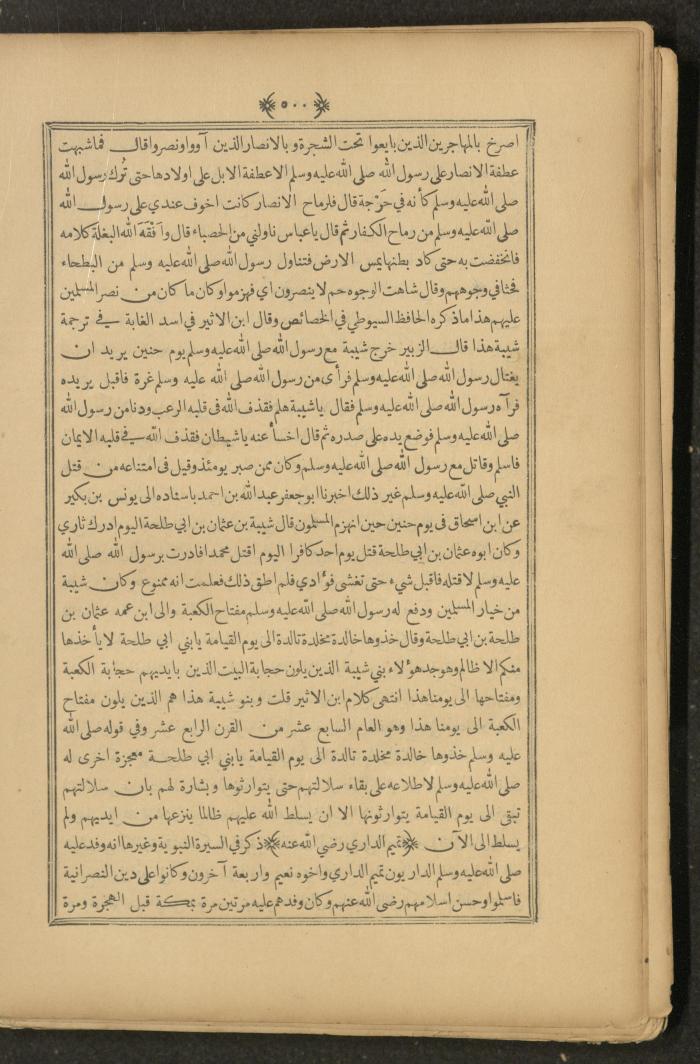 ٥٠٠
اصرخ بالمهاجرين الذين بايعوا تحت الشجرة وبالانصار الذين آووا ونصروا قال فما شبهت
عطفة الانصار على رسول الله صلى الله عليه وسلم الا عطفة الابل على اولادها حتى تُرك رسول الله
صلى الله عليه وسلم كأنه في حَرْجة قال فلرماح الانصار كانت اخوف عندي على رسول الله
صلى الله عليه وسلم من رماح الكفار ثم قال يا عباس ناولني من الحصباء قال وأفقه الله البغلة كلامه
فانخفضت به حتى كاد بطنها يمس الارض فتناول رسول الله صلى الله عليه وسلم من البطحاء
فحثا في وجوههم وقال شاهت الوجوه حم لا ينصرون اي فهزموا وكان ما كان من نصر المسلمين
عليهم هذا ما ذكره الحافظ السيوطي في الخصائص وقال ابن الاثير في اسد الغابة في ترجمة
شيبة هذا قال الزبير خرج شيبة مع رسول الله صلى الله عليه وسلم يوم حنين يريد ان
يغتال رسول الله صلى الله عليه وسلم فرأى من رسول الله صلى الله عليه وسلم غرة فاقبل يريده
فرآه رسول الله صلى الله عليه وسلم فقال يا شيبة هلم فقذف الله في قلبه الرعب ودنا من رسول الله
صلى الله عليه وسلم فوضع يده على صدره ثم قال اخسأ عنه يا شيطان فقذف الله في قلبه الايمان
فاسلم وقاتل مع رسول الله صلى الله عليه وسلم وكان ممن صبر يومئذ وقيل في امتناعه من قتل
النبي صلى الله عليه وسلم غير ذلك اخبرنا ابو جعفر عبد الله بن احمد باسناده الى يونس بن بكير
عن ابن اسحاق في يوم حنين حين انهزم المسلمون قال شيبة بن عثمان بن ابي طلحة اليوم ادرك ثاري
وكان ابوه عثمان بن ابي طلحة قتل يوم احد كافرا اليوم اقتل محمدا فادرت برسول الله صلى الله
عليه وسلم لاقتله فاقبل شيء حتى تغشى فؤادي فلم اطق ذلك فعلمت انه ممنوع وكان شيبة
من خيار المسلمين ودفع له رسول الله صلى الله عليه وسلم مفتاح الكعبة والى ابن عمه عثمان بن
طلحة بن ابي طلحة وقال خذوها خالدة مخلدة تالدة الى يوم القيامة يا بني ابي طلحة لا يأخذها
منكم الا ظالم وهو جد هؤلاء بني شيبة الذين يلون حجابة البيت الذين بايديهم حجابة الكعبة
ومفتاحها الى يومنا هذا انتهى كلام ابن الاثير قلت وبنو شيبة هذا هم الذين يلون مفتاح
الكعبة الى يومنا هذا وهو العام السابع عشر من القرن الرابع عشر وفي قوله صلى الله
عليه وسلم خذوها خالدة مخلدة تالدة الى يوم القيامة يا بني ابي طلحة معجزة اخرى له
صلى الله عليه وسلم لاطلاعه على بقاء سلالتهم حتى يتوارثوها وبشارة لهم بان سلالتهم
تبقى الى يوم القيامة يتوارثونها الا ان يسلط الله عليهم ظالما ينزعها من ايديهم ولم
يسلط الى الآن ﴿تميم الداري رضي الله عنه﴾ ذكر في السيرة النبوية وغيرها انه وفد عليه
صلى الله عليه وسلم الداريون تميم الداري واخوه نعيم واربعة آخرون وكانوا على دين النصرانية
فاسلموا وحسن اسلامهم رضي الله عنهم وكان وفدهم عليه مرتين مرة بمكة قبل الهجرة ومرة